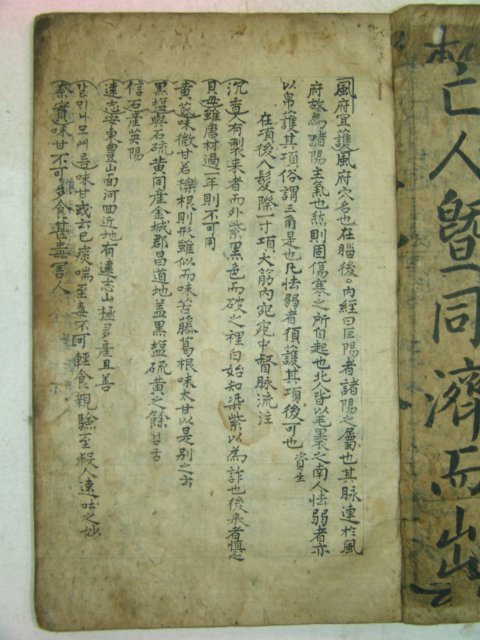 亡人曁同濟而出
風府宜護風府穴名也在腦後內經曰巨陽者諸陽之屬也其脉連於風
府故為諸陽主氣也然則固傷寒之所自起也北人皆以毛裹之南人怯弱者亦
以帛護其項俗謂三角是也凡怯弱者須護其項後可也 資生
在項後入髮際一寸項大筋內宛宛中督脉流注
沉香人有製来者而外紫黑色而破之裡白始知染紫以為詐也後来者慎之
貝母雖唐材過一年則不可用
黃芪味微甘若 根則形雖似而味苦 葛根味太甘以是別之云
黑塩與石硫黃同產金城郡昌道地盖黑塩硫黃之餘
信石產英陽
遠志安東豊山面河回近地有遠志山極多產且善
 味甘或云已痰喘至毒不可輕食親驗至殺人速吐之妙
柰實味甘不可多食甚毒害人